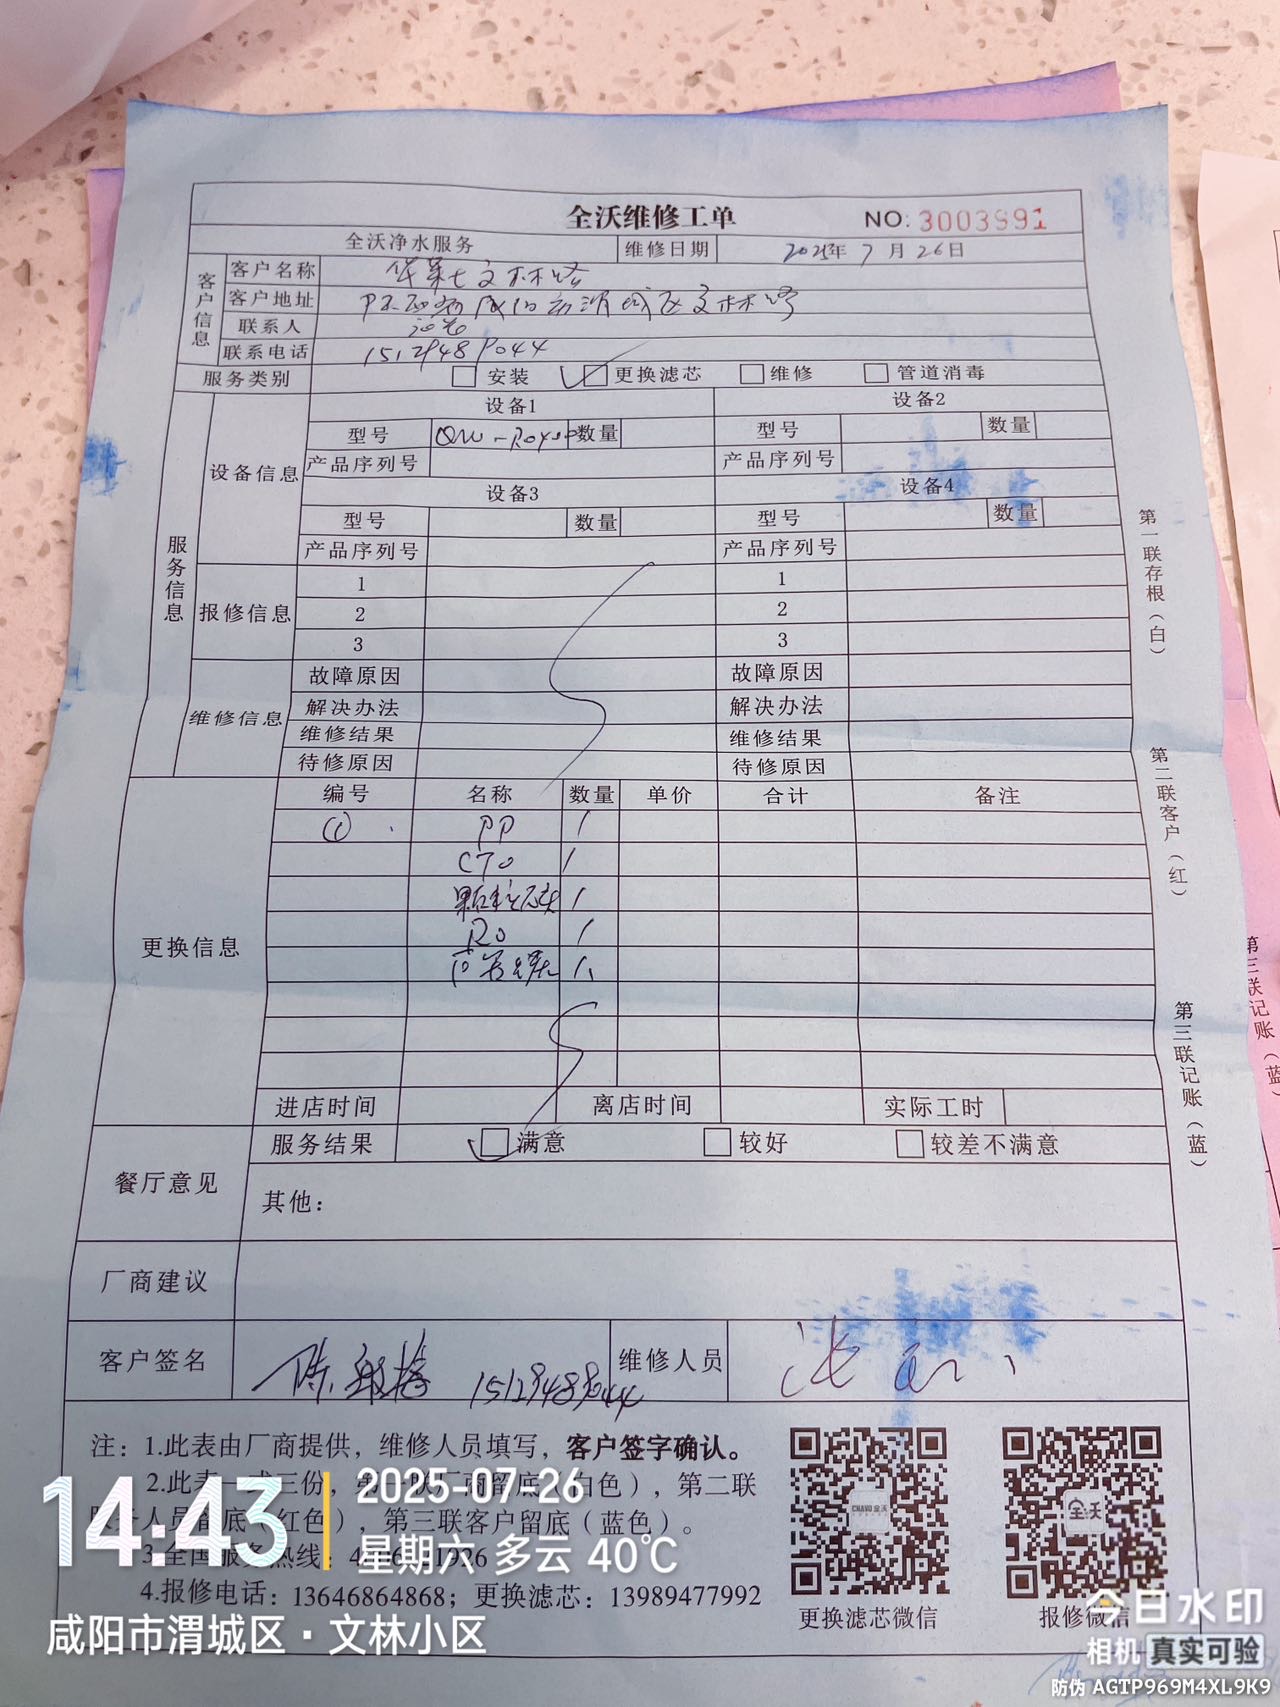 全沃维修工单 NO: 3003991
全沃净水服务 维修日期 2025年 7月 26日
客户信息
客户名称 华莱士文林路
客户地址 陕西省咸阳市渭城区文林路
联系人
联系电话 15129489044
服务类别 安装 更换滤芯 维修 管道消毒
服务信息
设备信息
设备1 设备2
型号 QW-RO400 数量 型号 数量
产品序列号 产品序列号
设备3 设备4
型号 数量 型号 数量
产品序列号 产品序列号
报修信息
1 1
2 2
3 3
维修信息
故障原因 故障原因
解决办法 解决办法
维修结果 维修结果
待修原因 待修原因
更换信息
编号 名称 数量 单价 合计 备注
① PP 1
CTO 1
颗粒炭 1
RO 1
后置炭 1
进店时间 离店时间 实际工时
餐厅意见
服务结果 满意 较好 较差不满意
其他:
厂商建议
客户签名 陈 15129489044 维修人员
第一联存根(白)
第二联客户(红)
第三联记账(蓝)
第三联记账(蓝)
注: 1.此表由厂商提供,维修人员填写,客户签字确认。
2.此表一式三份,第一联厂商留底(白色),第二联
人员留底(红色),第三联客户留底(蓝色)。
3.全国服务热线:
4.报修电话: 13646864868; 更换滤芯: 13989477992
CHAVO 全沃
全沃
更换滤芯微信
报修微信
14:43
2025-07-26
星期六 多云 40℃
咸阳市渭城区·文林小区
今日水印
相机 真实可验
防伪 AGTP969M4XL9K9